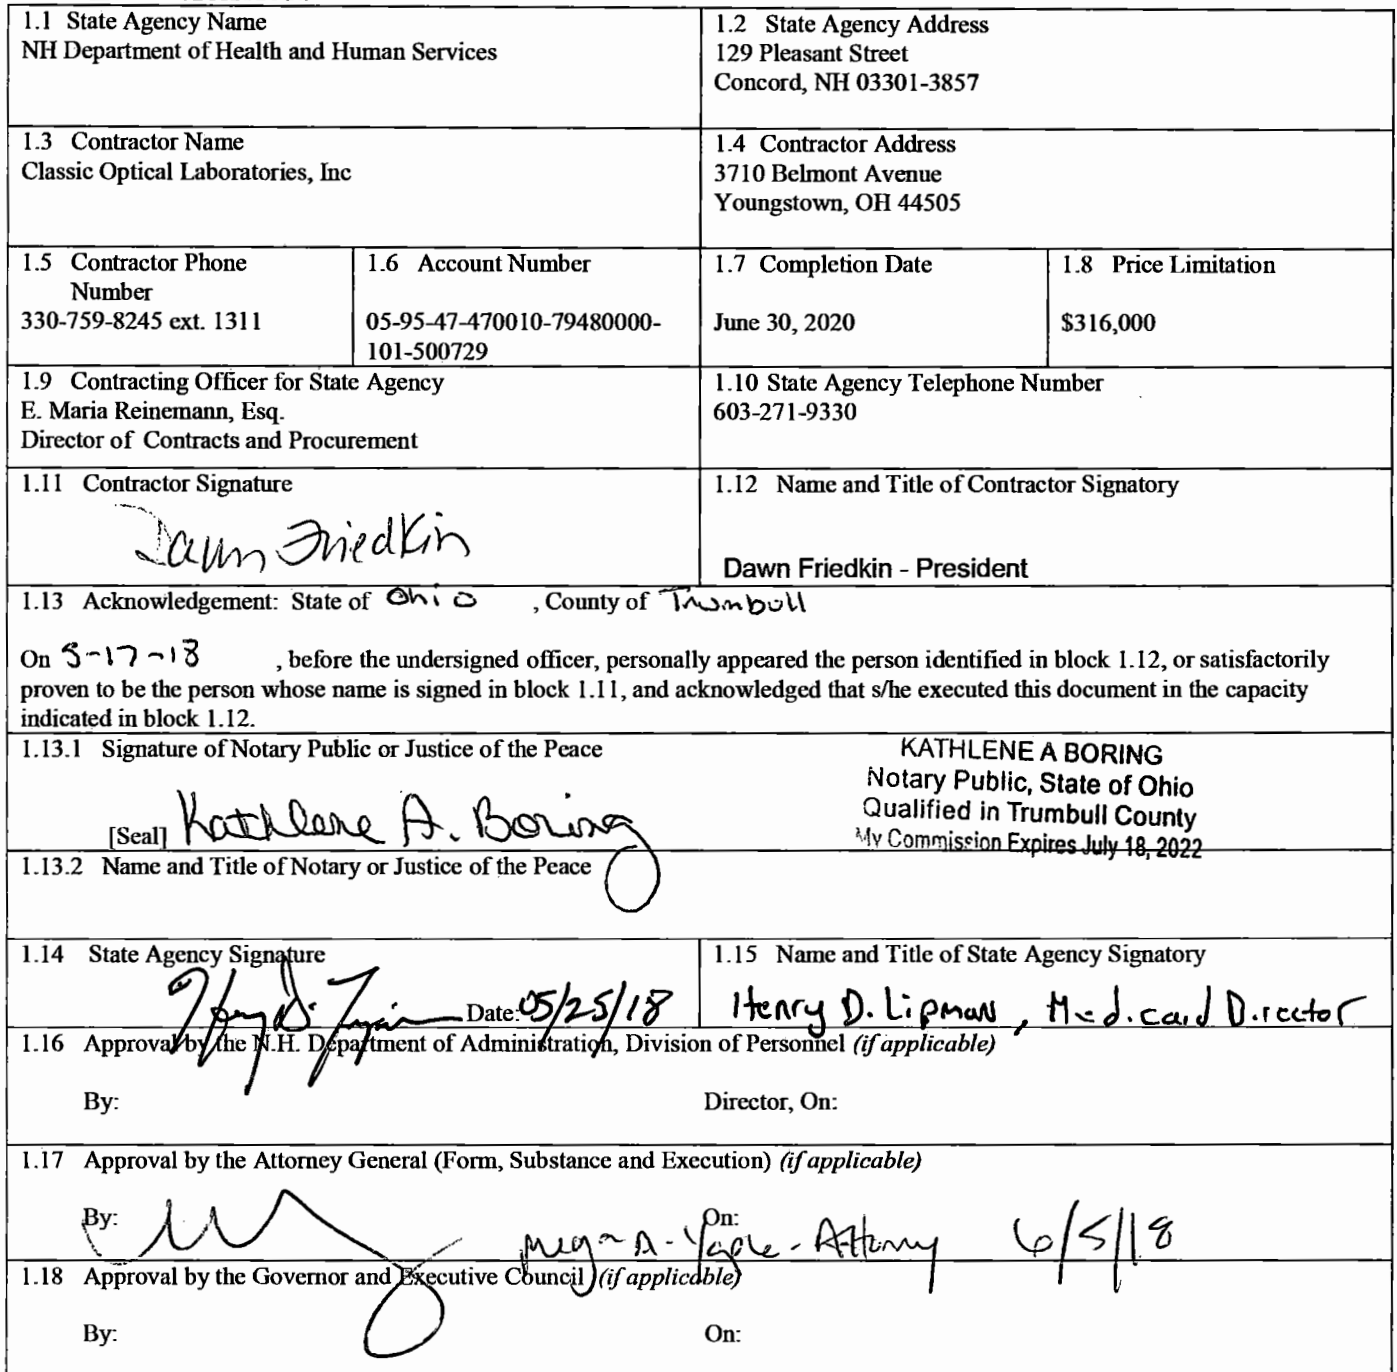 1.1 State Agency Name
NH Department of Health and Human Services
1.2 State Agency Address
129 Pleasant Street
Concord, NH 03301-3857
1.3 Contractor Name
Classic Optical Laboratories, Inc
1.4 Contractor Address
3710 Belmont Avenue
Youngstown, OH 44505
1.5 Contractor Phone
Number
330-759-8245 ext. 1311
1.6 Account Number
05-95-47-470010-79480000-
101-500729
1.7 Completion Date
June 30, 2020
1.8 Price Limitation
$316,000
1.9 Contracting Officer for State Agency
E. Maria Reinemann, Esq.
Director of Contracts and Procurement
1.10 State Agency Telephone Number
603-271-9330
1.11 Contractor Signature
Dawn Friedkin
1.12 Name and Title of Contractor Signatory
Dawn Friedkin - President
1.13 Acknowledgement: State of Ohio , County of Trumbull
On 5-17-18 , before the undersigned officer, personally appeared the person identified in block 1.12, or satisfactorily
proven to be the person whose name is signed in block 1.11, and acknowledged that s/he executed this document in the capacity
indicated in block 1.12.
1.13.1 Signature of Notary Public or Justice of the Peace
[Seal] Kathlene A. Boring
KATHLENE A BORING
Notary Public, State of Ohio
Qualified in Trumbull County
My Commission Expires July 18, 2022
1.13.2 Name and Title of Notary or Justice of the Peace
1.14 State Agency Signature
Date: 05/25/18
1.15 Name and Title of State Agency Signatory
Henry D. Lipman, Medicaid Director
1.16 Approval by the N.H. Department of Administration, Division of Personnel (if applicable)
By:
Director, On:
1.17 Approval by the Attorney General (Form, Substance and Execution) (if applicable)
By:
On:
Megan A. Yaple - Attorney 6/5/18
1.18 Approval by the Governor and Executive Council (if applicable)
By:
On: